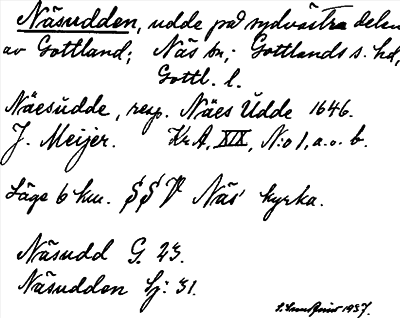 Näsudden, udde på sydvästra delen
av Gottland; Näs sn; Gottlands s. hd,
Gottl. l.
Näesudde, resp. Näes Udde 1646.
J. Meijer. KrA, XIX, N:o 1, a. o. b.
Läge 6 km. SSV Näs kyrka.
Näsudd G. 23.
Näsudden Sj: 31.
1937.